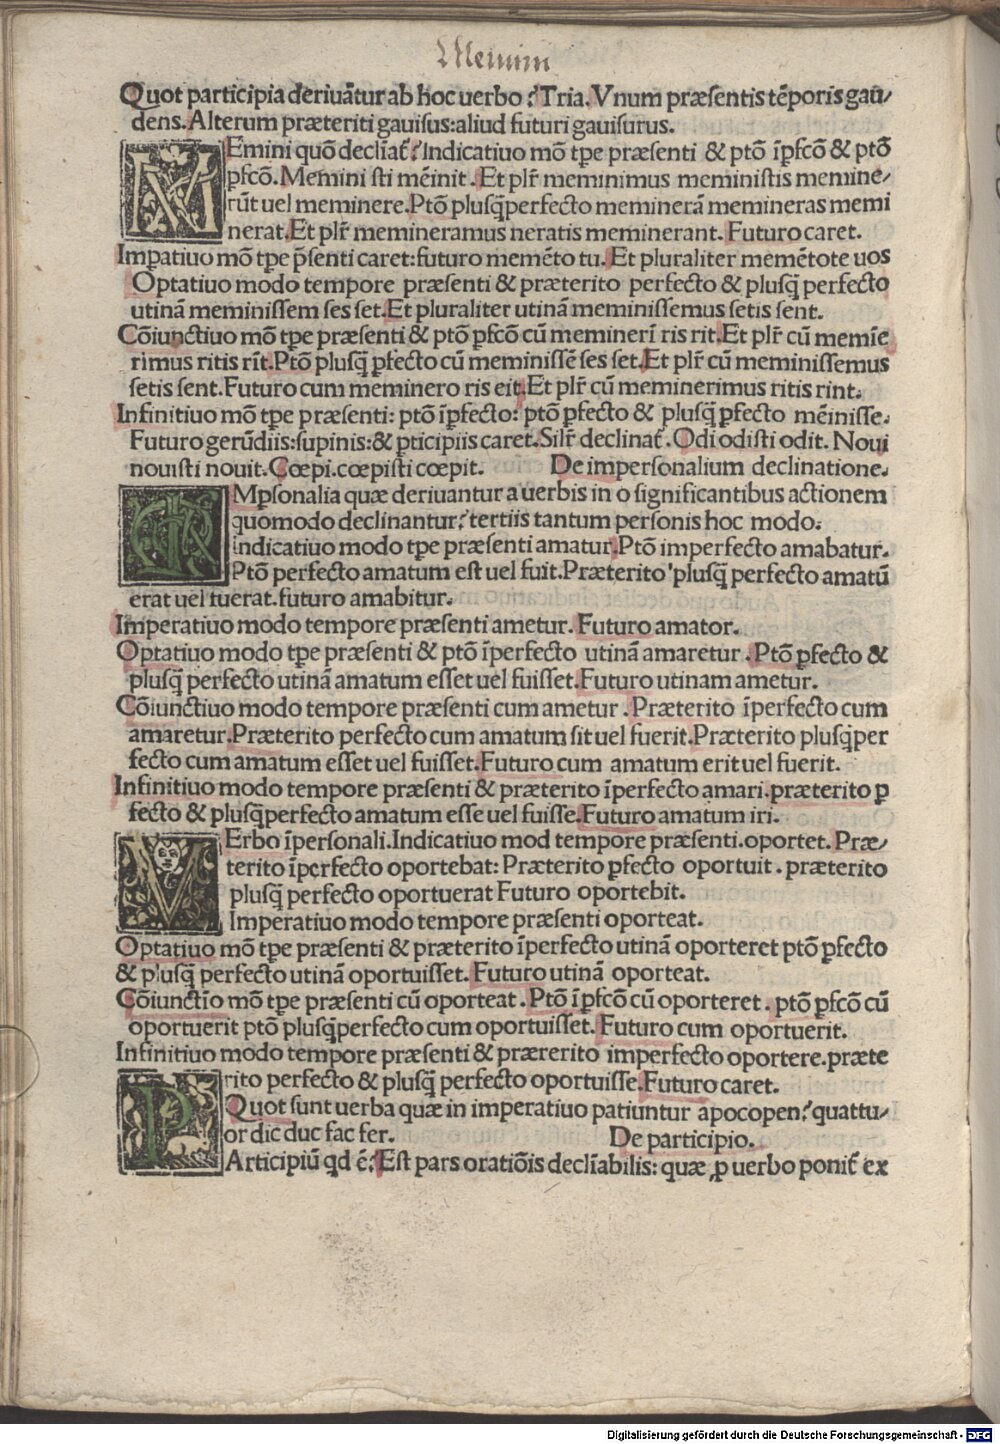 Memini
Quot participia deriuãtur ab hoc uerbo? Tria. Vnum præsentis tẽporis gaũ/
dens. Alterum præteriti gauisus: aliud futuri gauisurus.
MEmini quõ declĩat̃? Indicatiuo mõ tpe præsenti & ptõ ĩpfcõ & ptõ
ꝑfcõ. Memini sti mẽinit. Et plr̃ meminimus meministis memine/
rũt uel meminere. Ptõ plusq̃perfecto meminerã memineras memi
nerat. Et plr̃ memineramus neratis meminerant. Futuro caret.
Imꝑatiuo mõ tpe p̃senti caret: futuro memẽto tu. Et pluraliter memẽtote uos
Optatiuo modo tempore præsenti & præterito perfecto & plusq̃ perfecto
utinã meminissem ses set. Et pluraliter utinã meminissemus setis sent.
Cõiunctiuo mõ tꝑe præsenti & ptõ ꝑfcõ cũ meminerĩ ris rit. Et plr̃ cũ memĩe
rimus ritis rĩt. Ptõ plusq̃ ꝑfecto cũ meminissẽ ses set. Et plr̃ cũ meminissemus
setis sent. Futuro cum meminero ris eit. Et plr̃ cũ meminerimus ritis rint.
Infinitiuo mõ tꝑe præsenti: ptõ ĩꝑfecto: ptõ ꝑfecto & plusq̃ ꝑfecto mẽinisse.
Futuro gerũdiis: supinis: & ꝑticipiis caret. Silr̃ declinat̃. Odi odisti odit. Noui
nouisti nouit. Cœpi. cœpisti cœpit. De impersonalium declinatione.
IMꝑsonalia quæ deriuantur a uerbis in o significantibus actionem
quomodo declinantur? tertiis tantum personis hoc modo.
indicatiuo modo tꝑe præsenti amatur. Ptõ imperfecto amabatur.
Ptõ perfecto amatum est uel fuit. Præterito plusq̃ perfecto amatũ
erat uel fuerat. futuro amabitur.
Imperatiuo modo tempore præsenti ametur. Futuro amator.
Optatiuo modo tꝑe præsenti & ptõ ĩperfecto utinã amaretur. Ptõ ꝑfecto &
plusq̃ perfecto utinã amatum esset uel fuisset. Futuro utinam ametur.
Cõiunctiuo modo tempore præsenti cum ametur. Præterito ĩperfecto cum
amaretur. Præterito perfecto cum amatum sit uel fuerit. Præterito plusq̃per
fecto cum amatum esset uel fuisset. Futuro cum amatum erit uel fuerit.
Infinitiuo modo tempore præsenti & præterito ĩperfecto amari. præterito ꝑ
fecto & plusq̃perfecto amatum esse uel fuisse. Futuro amatum iri.
VErbo ĩpersonali. Indicatiuo mod tempore præsenti. oportet. Præ/
terito ĩperfecto oportebat: Præterito ꝑfecto oportuit. præterito
plusq̃ perfecto oportuerat Futuro oportebit.
Imperatiuo modo tempore præsenti oporteat.
Optatiuo mõ tꝑe præsenti & præterito ĩperfecto utinã oporteret ptõ ꝑfecto
& plusq̃ perfecto utinã oportuisset. Futuro utinã oporteat.
Cõiunctĩo mõ tꝑe præsenti cũ oporteat. Ptõ ĩꝑfcõ cũ oporteret. ptõ ꝑfcõ cũ
oportuerit ptõ plusq̃perfecto cum oportuisset. Futuro cum oportuerit.
Infinitiuo modo tempore præsenti & prærerito imperfecto oportere. præte
rito perfecto & plusq̃ perfecto oportuisse. Futuro caret.
Quot sunt uerba quæ in imperatiuo patiuntur apocopen? quattu/
or dic duc fac fer. De participio.
PArticipiũ qd ẽ? Est pars oratiõis declĩabilis: quæ ꝓ uerbo ponit̃ ex
Digitalisierung gefördert durch die Deutsche Forschungsgemeinschaft - DFG